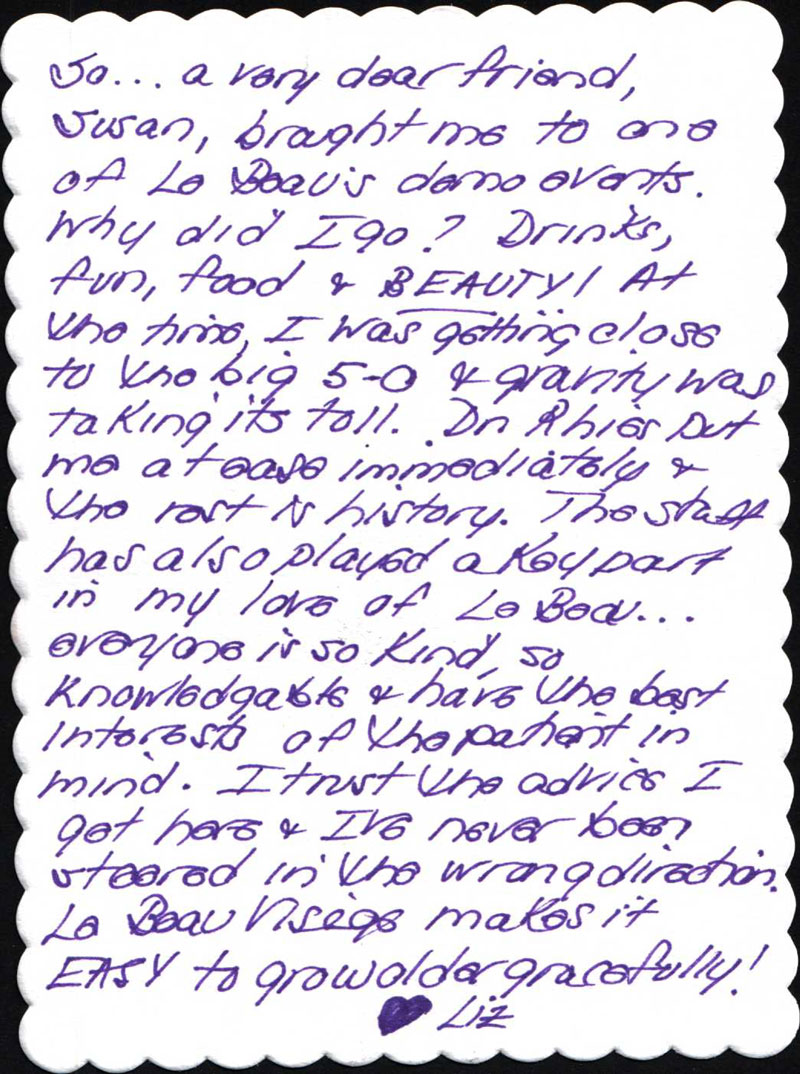 So... a very dear friend,
Susan, brought me to one
of Le Beau's demo events.
Why did I go? Drinks,
fun, food & BEAUTY! At
the time, I was getting close
to the big 5-0 & gravity was
taking its toll. Dr. Rhies put
me at ease immediately &
the rest is history. The staff
has also played a key part
in my love of Le Beau...
everyone is so kind, so
knowledgable & have the best
interests of the patient in
mind. I trust the advice I
get here & I've never been
steered in the wrong direction.
Le Beau Visége makes it
EASY to grow older gracefully!
♥ Liz